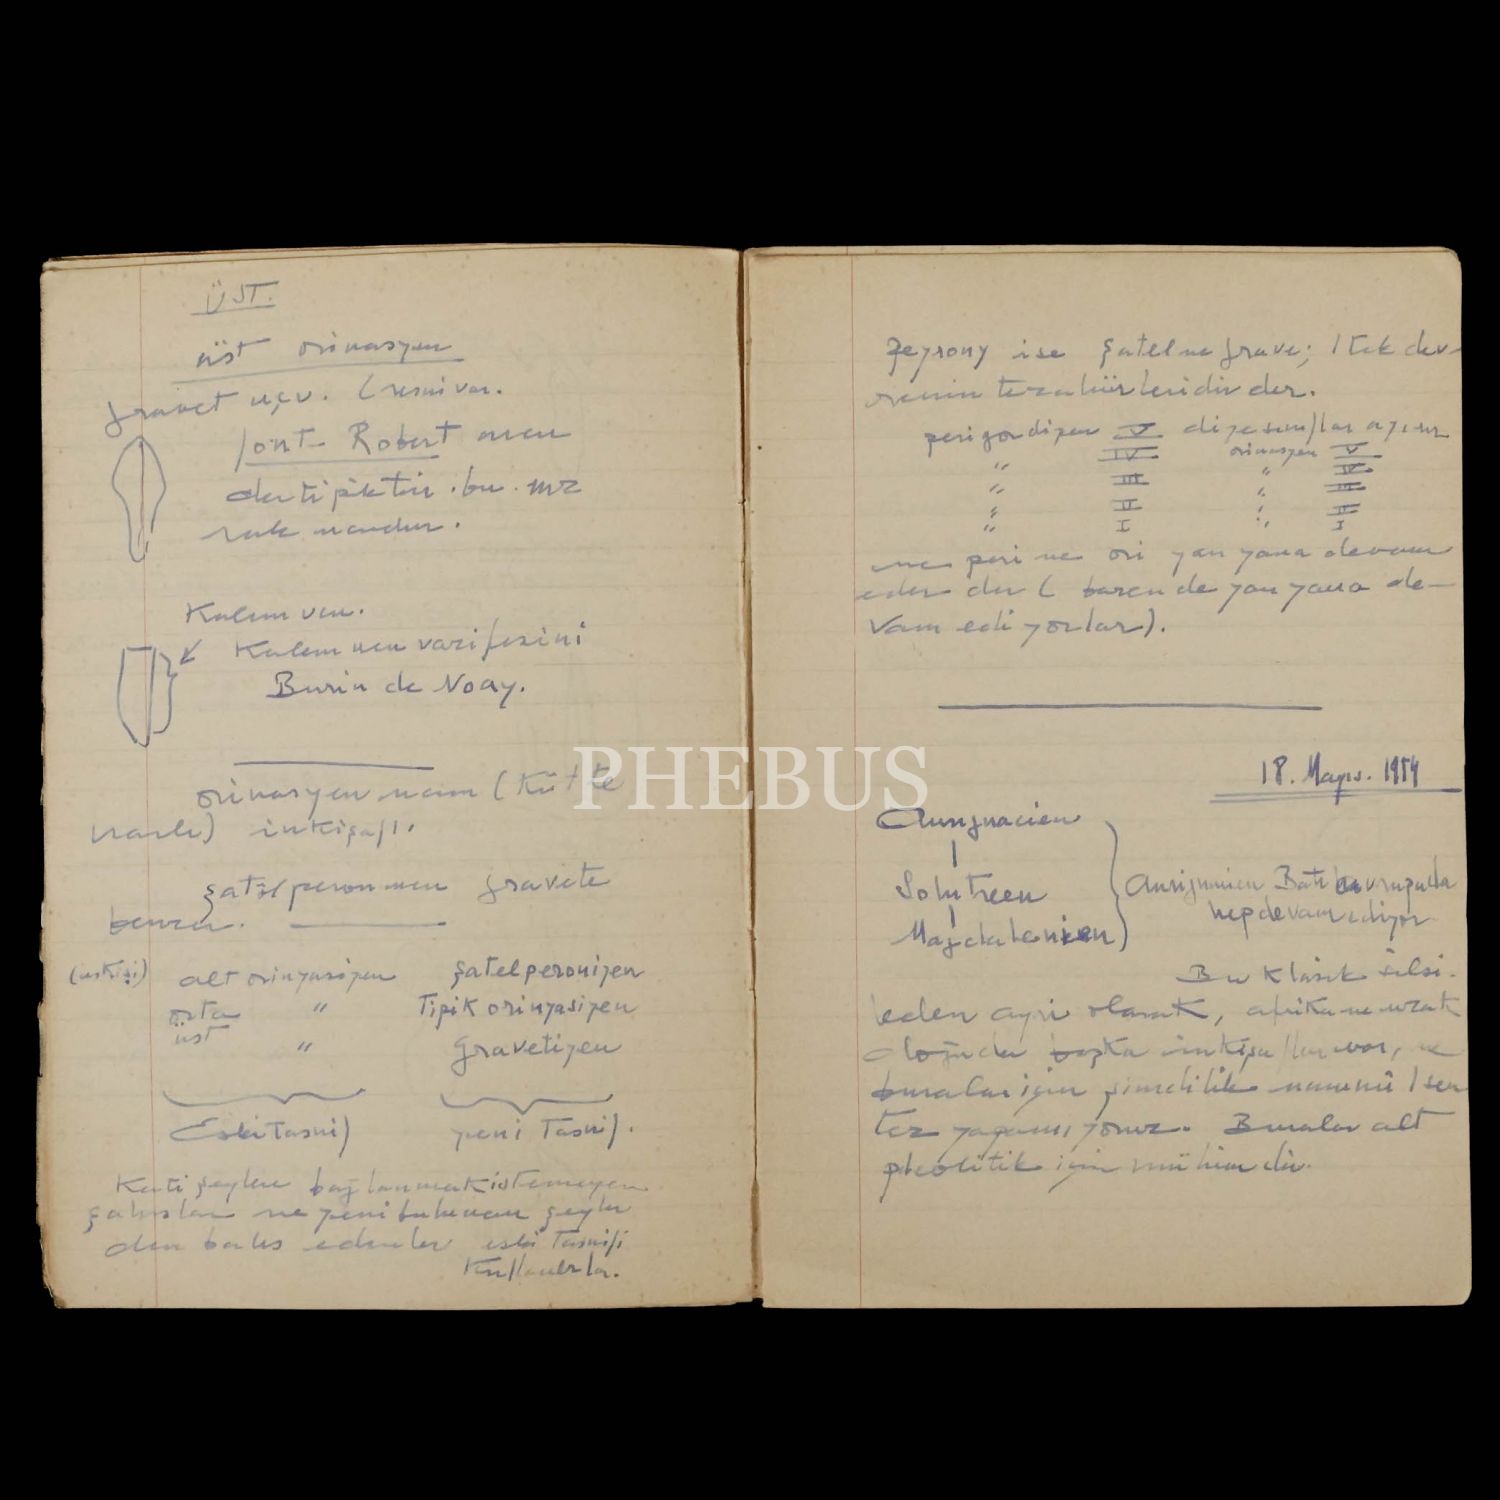 ÜST.
üst orinasyen
gravet ucu. (resmi var.
Font-Robert
der tipiktir. bu. mız
rak ucudur.
Kalem ucu.
Kalem ucu vazifesini
Burin de Noay.
orinasyen nasıl (
inkişafı.
şatelperon ucu gravete
benzer.
(eskisi) alt orinyasiyen şatelperoniyen
orta " Tipik orinyasiyen
üst " Gravetiyen
Eski Tasnif yeni Tasnif.
Kati şeylere bağlanmak istemeyen
şahıslar ve yeni bulunan şeyler
den bahs edenler eski Tasnifi
Kullanırlar.
Peyrony ise şatel ve grave; 1 tek dev-
renin tezahürleridir der.
perigordiyen V diye sınıflar ayırır
IV orinasyen V
" III " IV
" II " III
" I " II
I
ve peri ve ori yan yana devam
eder der ( bazen de yan yana de-
vam ediyorlar).
18. Mayıs. 1954
Aurignacien
Solutreen
Magdalenien
Aurignacien Batı Avrupada
hep devam ediyor
Bu klasik silsi-
leden ayrı olarak, afrika ve uzak
doğuda başka inkişaflar var, ve
buralar için şimdilik umumi 1 sen
tez yapamıyoruz. Buralar alt
pleolitik için mühimdir.
PHEBUS